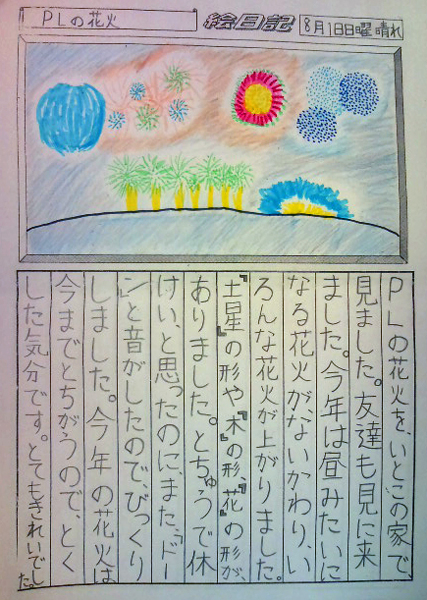 PLの花火
絵日記
8月1日日曜 晴れ
PLの花火を、いとこの家で
見ました。友達も見に来
ました。今年は昼みたいに
なる花火が、ないかわり、い
ろんな花火が上がりました。
『土星』の形や、『木』の形、『花』の形が、
ありました。とちゅうで休
けい、と思ったのに、また、「ドー
ン」と音がしたので、びっくり
しました。今年の花火は
今までとちがうので、とく
した気分です。とてもきれいでし
た。